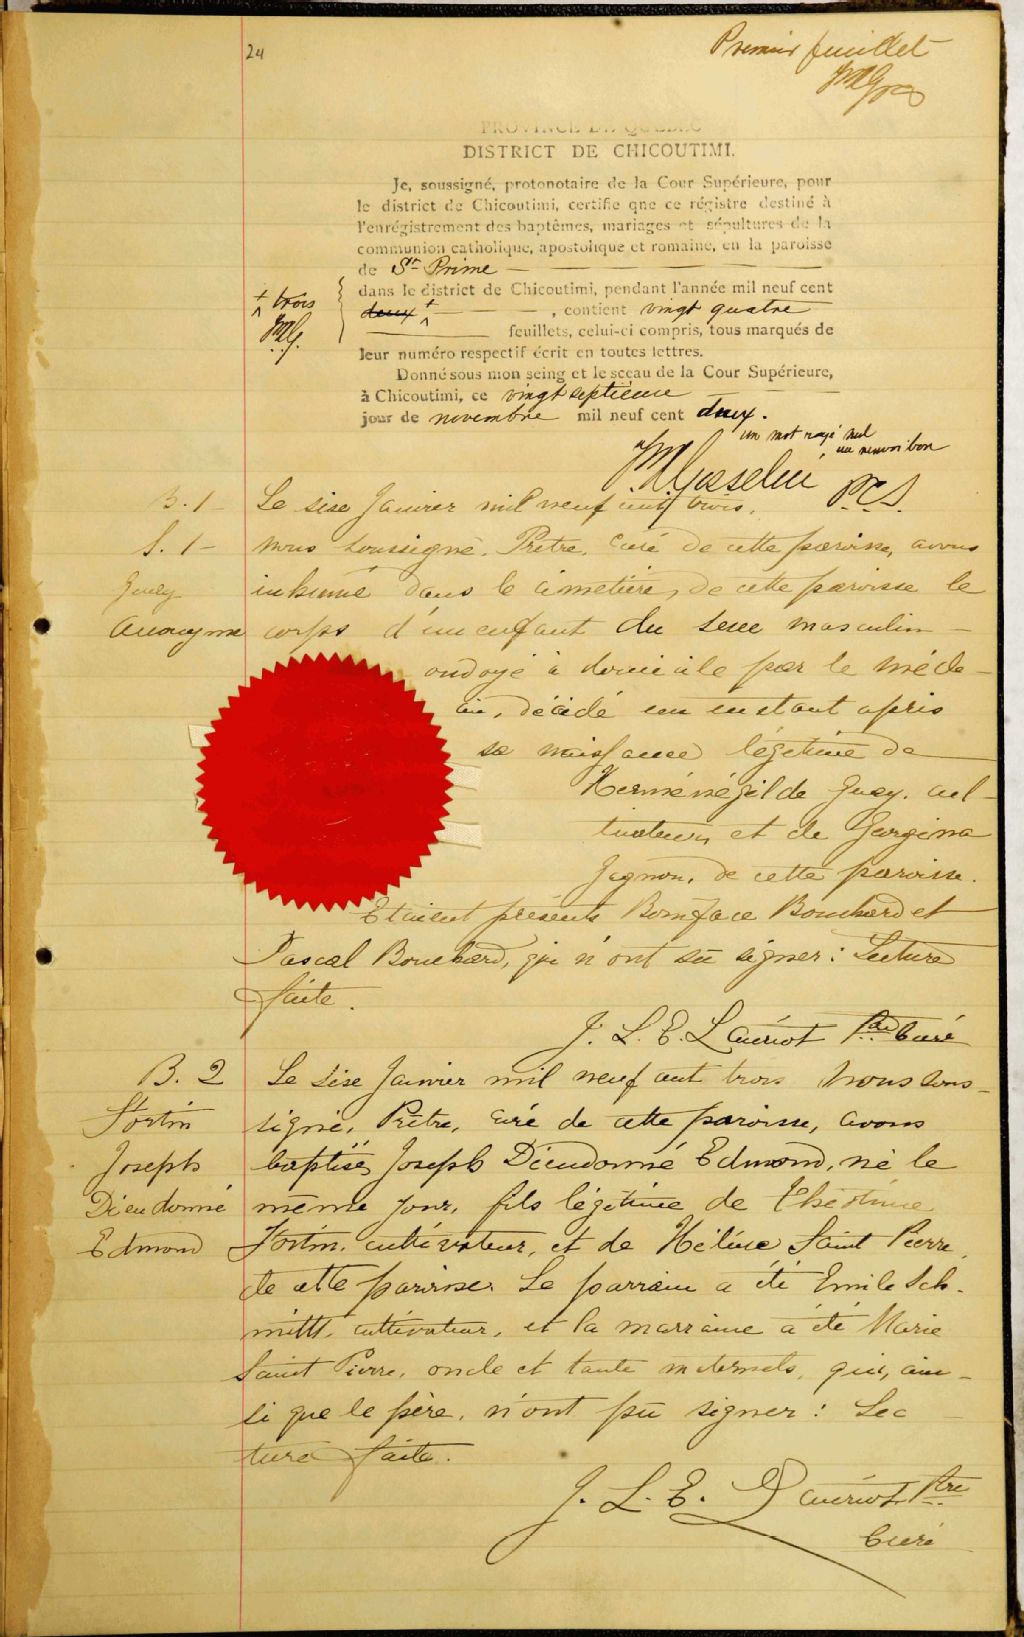 24
Premier feuillet
PROVINCE DE QUÉBEC
DISTRICT DE CHICOUTIMI.
Je, soussigné, protonotaire de la Cour Supérieure, pour
le district de Chicoutimi, certifie que ce régistre destiné à
l'enrégistrement des baptêmes, mariages et sépultures de la
communion catholique, apostolique et romaine, en la paroisse
de St Prime
dans le district de Chicoutimi, pendant l'année mil neuf cent
+ trois
deux + , contient vingt quatre
feuillets, celui-ci compris, tous marqués de
leur numéro respectif écrit en toutes lettres.
Donné sous mon seing et le sceau de la Cour Supérieure,
à Chicoutimi, ce vingt septième
jour de novembre mil neuf cent deux.
un mot rayé nul
un renvoi bon
Gosselin P.C.S.
B. 1 Le sise Janvier mil neuf cent trois,
S. 1 nous soussigné, Prêtre, curé de cette paroisse, avons
Guey inhumé dans le cimetière, de cette paroisse le
Anonyme corps d'un enfant du sexe masculin
ondoyé à domicile par le méde-
cin, décédé un instant après
sa naissance légitime de
Herménégilde Guey, cul-
tivateur, et de Gorgina
Gagnon, de cette paroisse.
Etaient présents Boniface Bouchard et
Pascal Bouchard, qui n'ont su signer: Lecture
faite.
J. L. E. Lauriot Ptre Curé
B. 2 Le sise Janvier mil neuf cent trois Nous sous-
Fortin signé, Prêtre, curé de cette paroisse, avons
Joseph baptisé, Joseph Dieudonné Edmond, né le
Dieudonné même jour, fils légitime de Théotime
Edmond Fortin, cultivateur, et de Hélène Saint Pierre,
de cette paroisse. Le parrain a été Emile Sch-
mitt, cultivateur, et la marraine a été Marie
Saint Pierre, oncle et tante maternels, qui, ain-
si que le père, n'ont pu signer: Lec
ture faite.
J. L. E. Lauriot Ptre
Curé